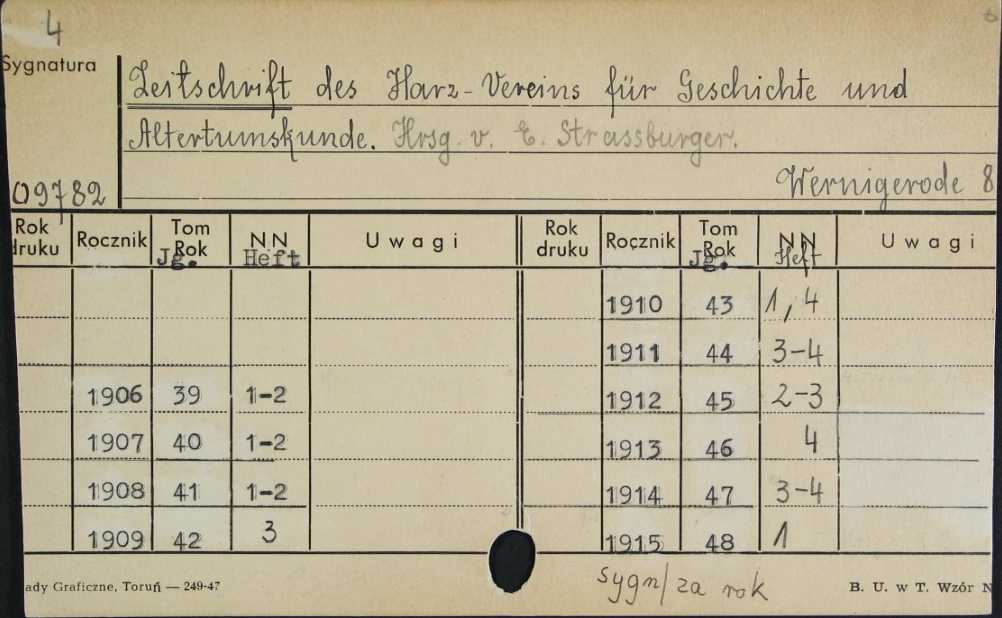 4
Sygnatura
Zeitschrift des Harz-Vereins für Geschichte und
Altertumskunde. Hrsg. v. E. Strassburger.
09782
Wernigerode 8
Rok druku Rocznik Tom Rok Jg. NN Heft Uwagi Rok druku Rocznik Tom Rok Jg. NN Heft Uwagi
1910 43 1, 4
1911 44 3-4
1906 39 1-2 1912 45 2-3
1907 40 1-2 1913 46 4
1908 41 1-2 1914 47 3-4
1909 42 3 1915 48 1
sygn/za rok
ady Graficzne, Toruń — 249-47 B. U. w T. Wzór N